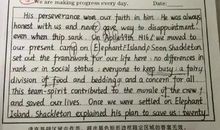 We are making progress every day. Date:
His perseverance won our faith in him. He was always
honest with us and never gave way to disappointment,
even when ship sank. On 1916, we moved to
our present camp on Elephant Island. Soon Shackleton
set out the framework for our life here: no differences in
rank or in social status; everyone to keep busy; a fairy
division of food and bedding; and a concern for all
this team-spirit contributed to the morale of the crew
and saved our lives. Once we were settled on Elephant
Island, Shackleton explained his plan to save us: twenty